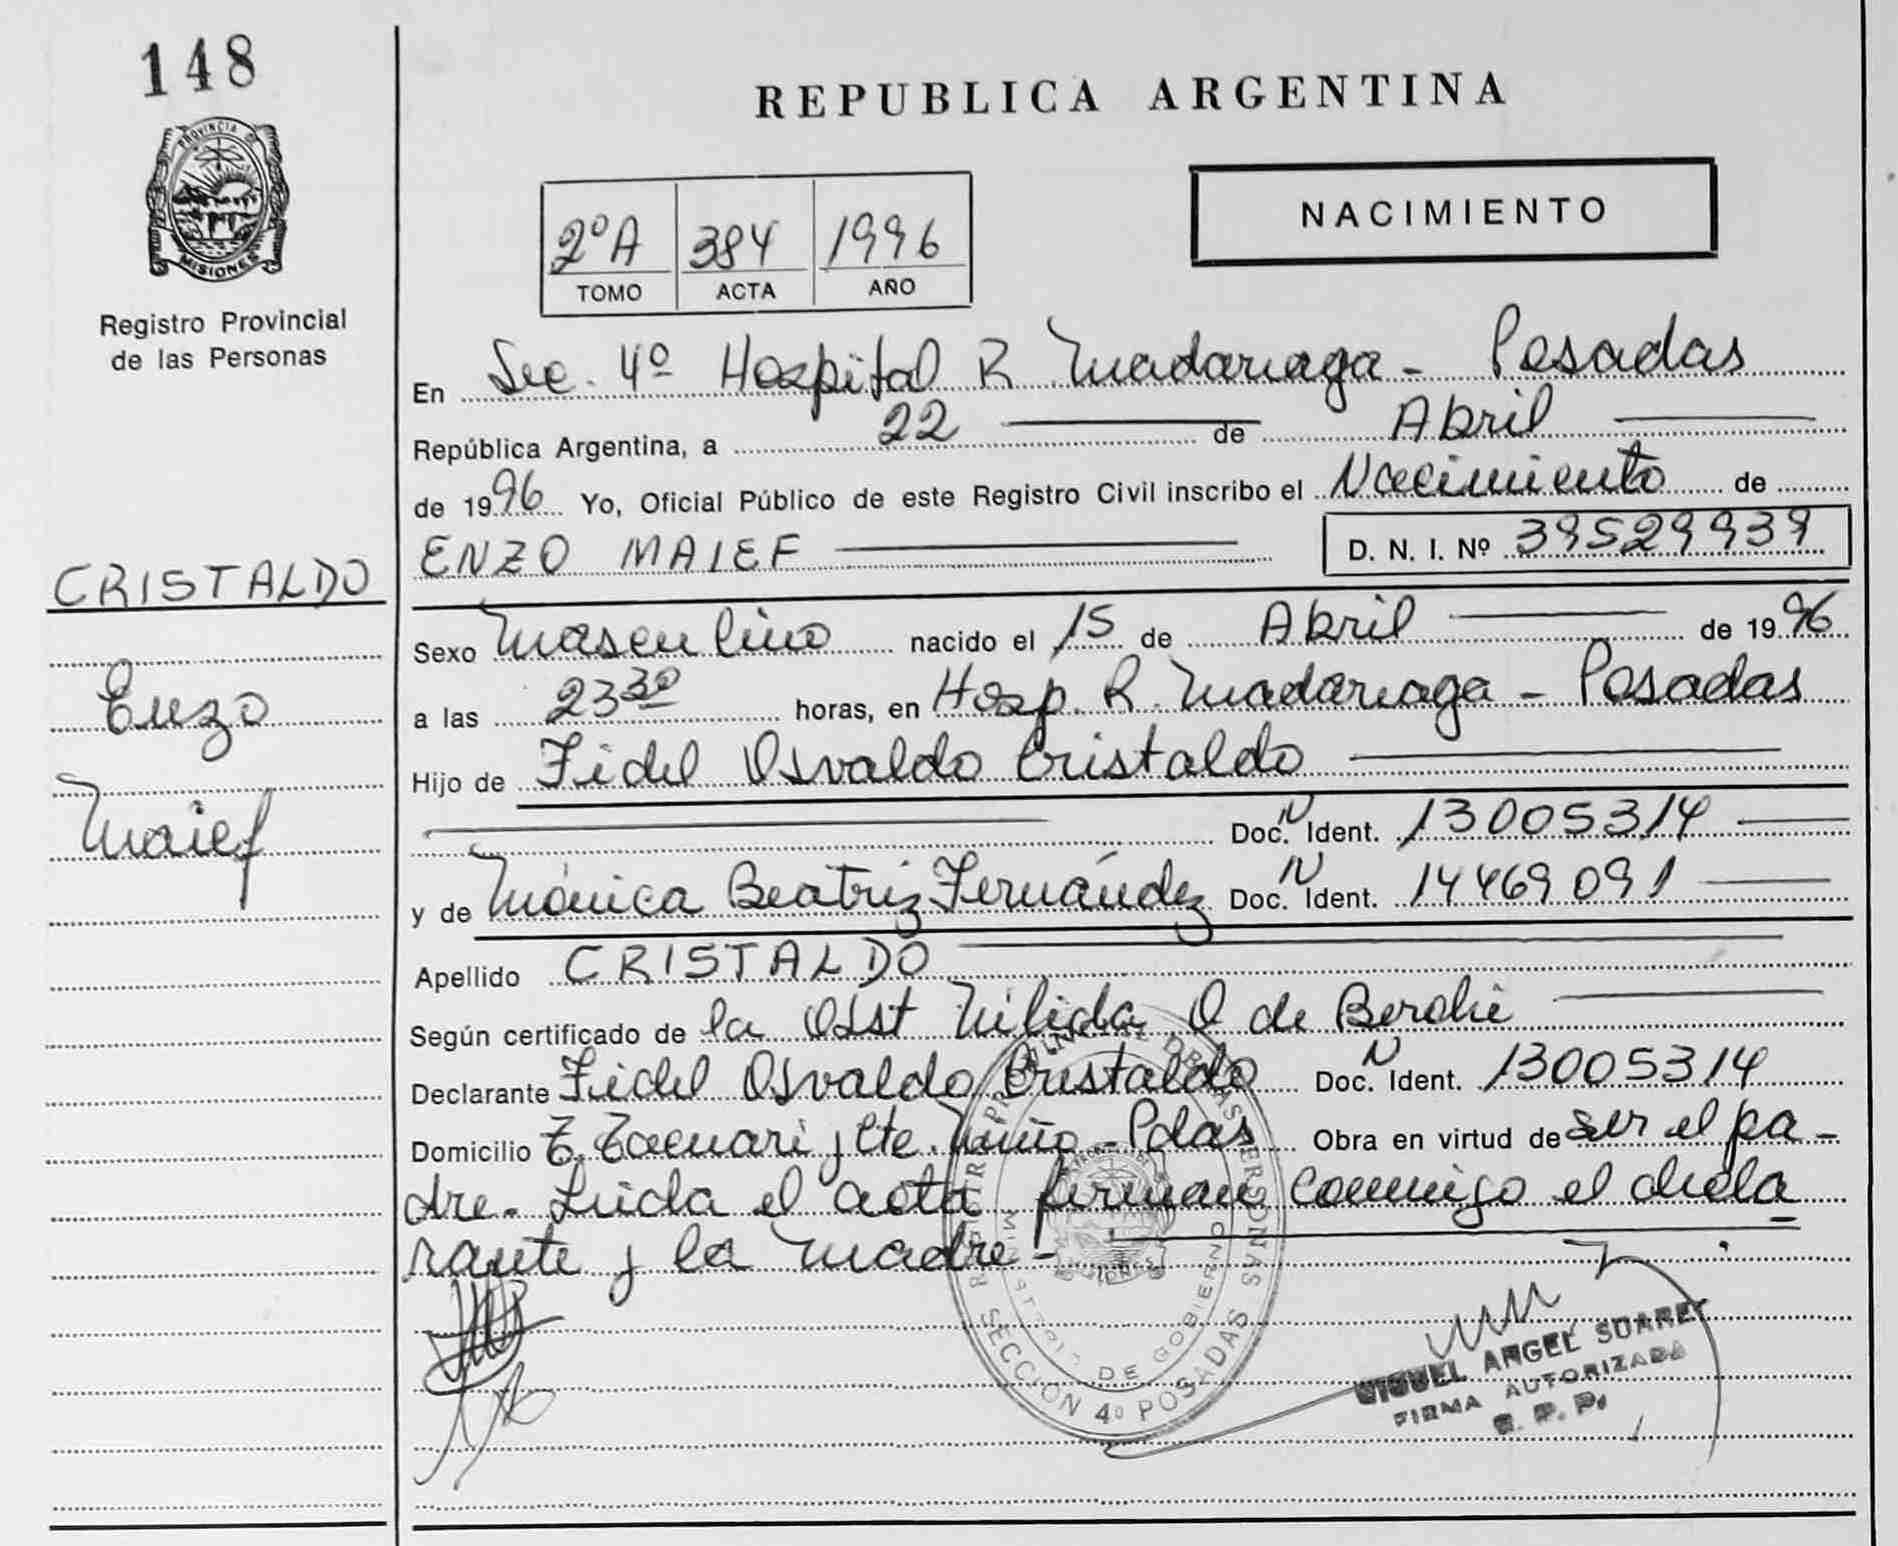 148
PROVINCIA DE
MISIONES
Registro Provincial
de las Personas
CRISTALDO
Enzo
Maief
REPUBLICA ARGENTINA
NACIMIENTO
2º A 384 1996
TOMO ACTA AÑO
En Sec. 4º Hospital R Madariaga - Posadas
República Argentina, a 22 de Abril
de 1996 Yo, Oficial Público de este Registro Civil inscribo el Nacimiento de
ENZO MAIEF D. N. I. Nº 39529939
Sexo Masculino nacido el 15 de Abril de 1996
a las 23 30 horas, en Hosp. R. Madariaga - Posadas
Hijo de Fidel Osvaldo Cristaldo
Doc. N Ident. 13005314
y de Mónica Beatriz Fernández Doc. N Ident. 14469091
Apellido CRISTALDO
Según certificado de la Obst Nélida O de
Declarante Fidel Osvaldo Cristaldo Doc. N Ident. 13005314
Domicilio Tacuari y Cte. Miño - Pdas Obra en virtud de ser el pa-
dre. Leída el acta firman conmigo el decla
rante y la madre-
SECCION 4º POSADAS
MINISTERIO DE GOBIERNO
MIGUEL ANGEL SUAREZ
FIRMA AUTORIZADA
R. P. P.